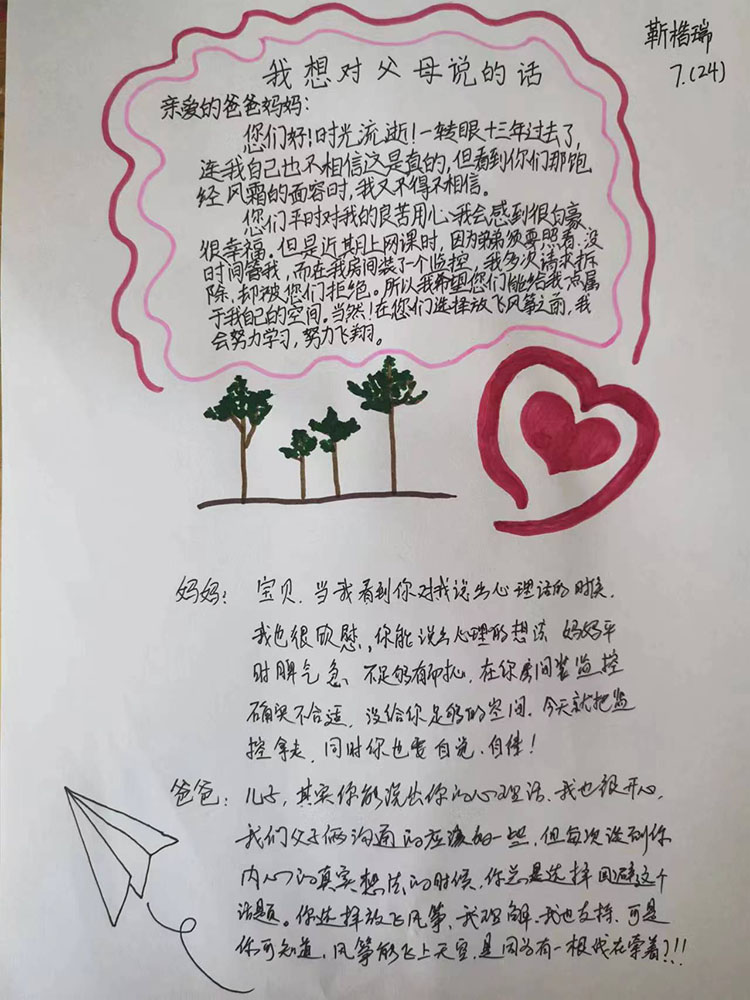 靳楷瑞
7.(24)
我想对父母说的话
亲爱的爸爸妈妈:
您们好!时光流逝!一转眼十三年过去了,
连我自己也不相信这是真的,但看到你们那饱
经风霜的面容时,我又不得不相信。
您们平时对我的良苦用心我会感到很自豪
很幸福。但是近期上网课时,因为弟弟须要照看,没
时间管我,而在我房间装了一个监控,我多次请求拆
除,却被您们拒绝。所以我希望您们能给我一点属
于我自己的空间。当然!在您们选择放飞风筝之前,我
会努力学习,努力飞翔。
妈妈: 宝贝,当我看到你对我说出心理话的时候,
我也很欣慰,你能说出心理的想法 妈妈平
时脾气急、不足够有耐心,在你房间装监控
确实不合适,没给你足够的空间,今天就把监
控拿走,同时你也要自觉、自律!
爸爸: 儿子,其实你能说出你的心理话、我也很开心,
我们父子俩沟通的应该好一些,但每次谈到你
内心的真实想法的时候,你总是选择回避这个
话题。你选择放飞风筝,我理解、我也支持,可是
你可知道,风筝能飞上天空,是因为有一根线在牵着?!!